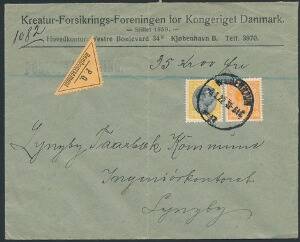 Kreatur-Forsikrings-Foreningen for Kongeriget Danmark.
Stiftet 1859.
1082
Hovedkontor: Vestre Boulevard 34 Kjøbenhavn B. Telf. 3870.
35 Kr 00 Øre
P. O.
Lyngby Taarbæk Kommune
Ingeniørkontoret
Lyngby